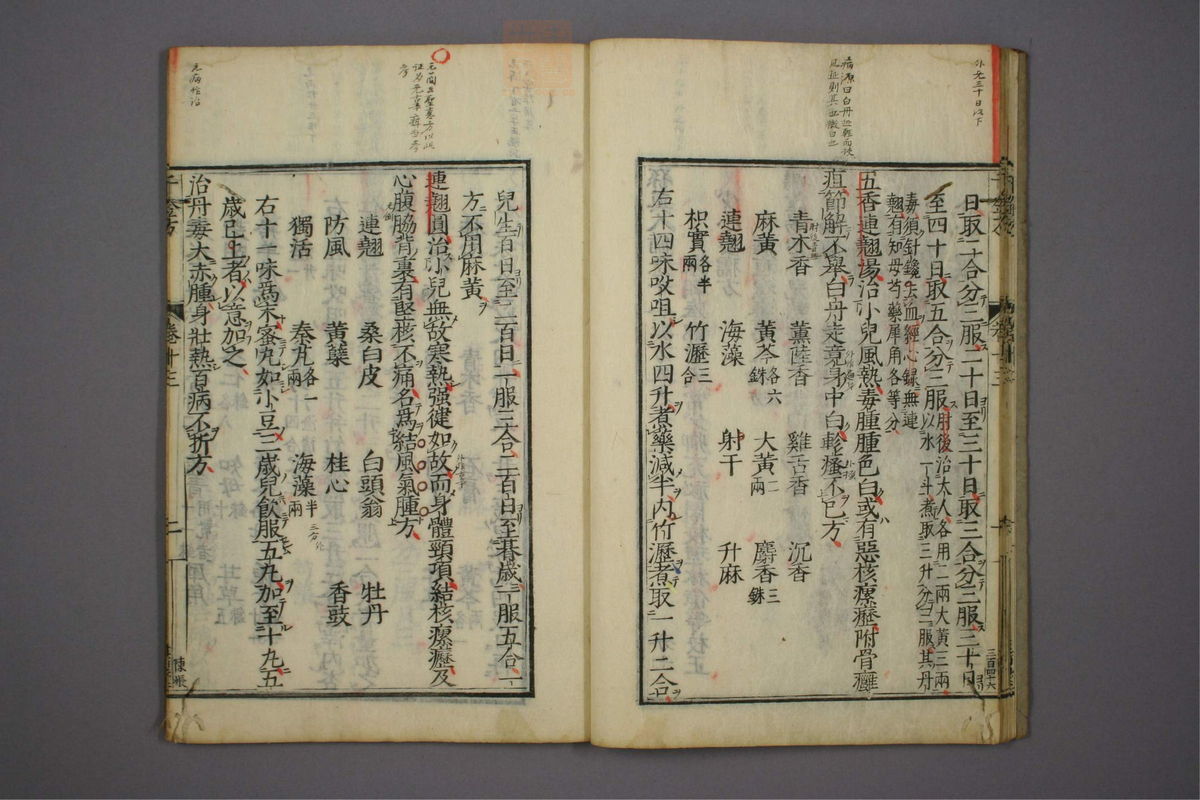 日取二合分三服二十日至三十日取三合分三服三十日
至四十日取五合分三服肘後治大人各用二兩大黃三兩以水一斗煮取三升分三服其丹
毒須針鑱去血經心録無連翹有知母芍藥犀角各等分
五香連翹湯治小兒風熱毒腫腫色白或有惡核瘰癧附骨癰
疽節解不舉白丹走竟身中白㾦瘙不已方
青木香 薰陸香 雞舌香 沉香
麻黃 黃芩各六銖 大黃二兩 麝香三銖
連翹 海藻 射干 升麻
枳實各半兩 竹瀝三合
右十四味㕮咀以水四升煮藥減半內竹瀝煮取一升二合
兒生百日至二百日一服三合二百日至朞歲一服五合一
方不用麻黃
連翹圓治小兒無故寒熱强健如故而身體頸項結核瘰癧及
心腹脇背裏有堅核不痛名爲結風氣腫方
連翹 桑白皮 白頭翁 牡丹
防風 黃蘗 桂心 香豉
獨活 秦艽各一兩 海藻半兩
右十一味爲末蜜丸如小豆二歲兒飲服五丸加至十丸五
歲已上者以意加之
治丹毒大赤腫身壯熱百病不折方
千金方 卷十三